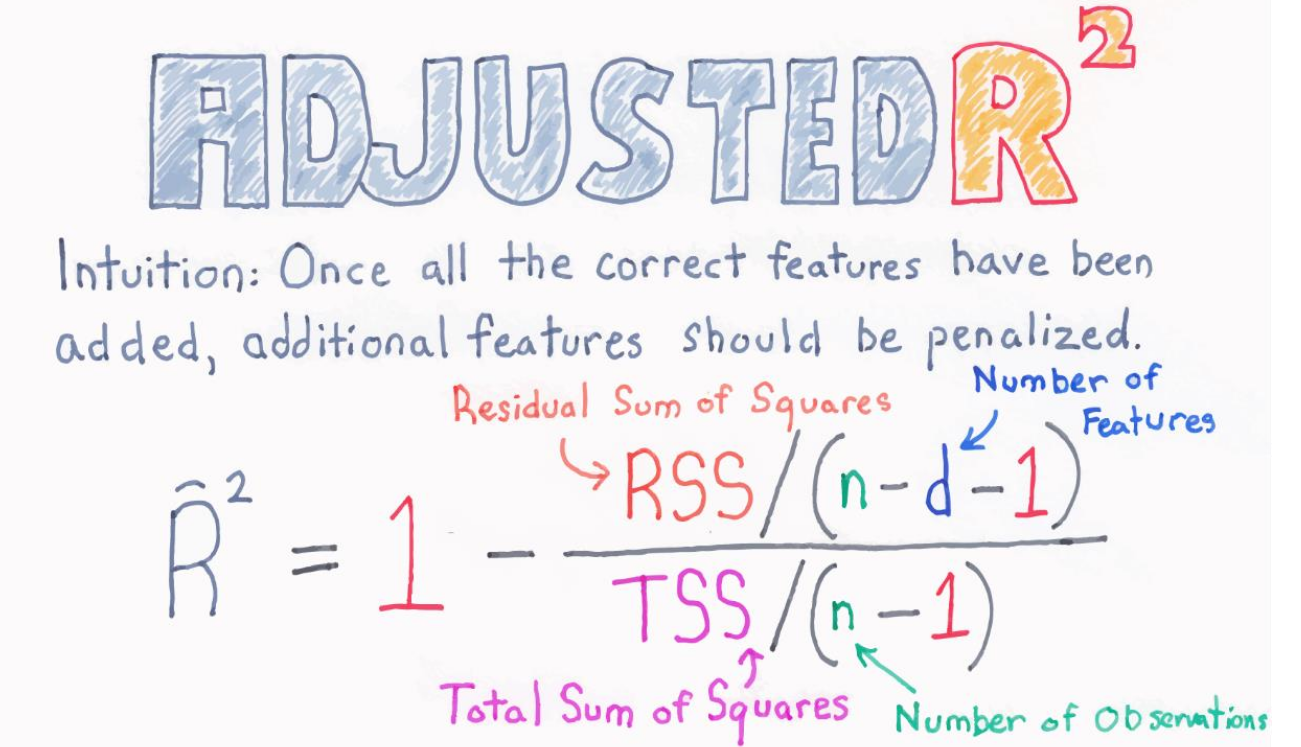 ADJUSTED R²
Intuition: Once all the correct features have been
added, additional features should be penalized.
Residual Sum of Squares
Number of
Features
R̂² = 1 - RSS/(n-d-1)
TSS/(n-1)
Total Sum of Squares
Number of Observations